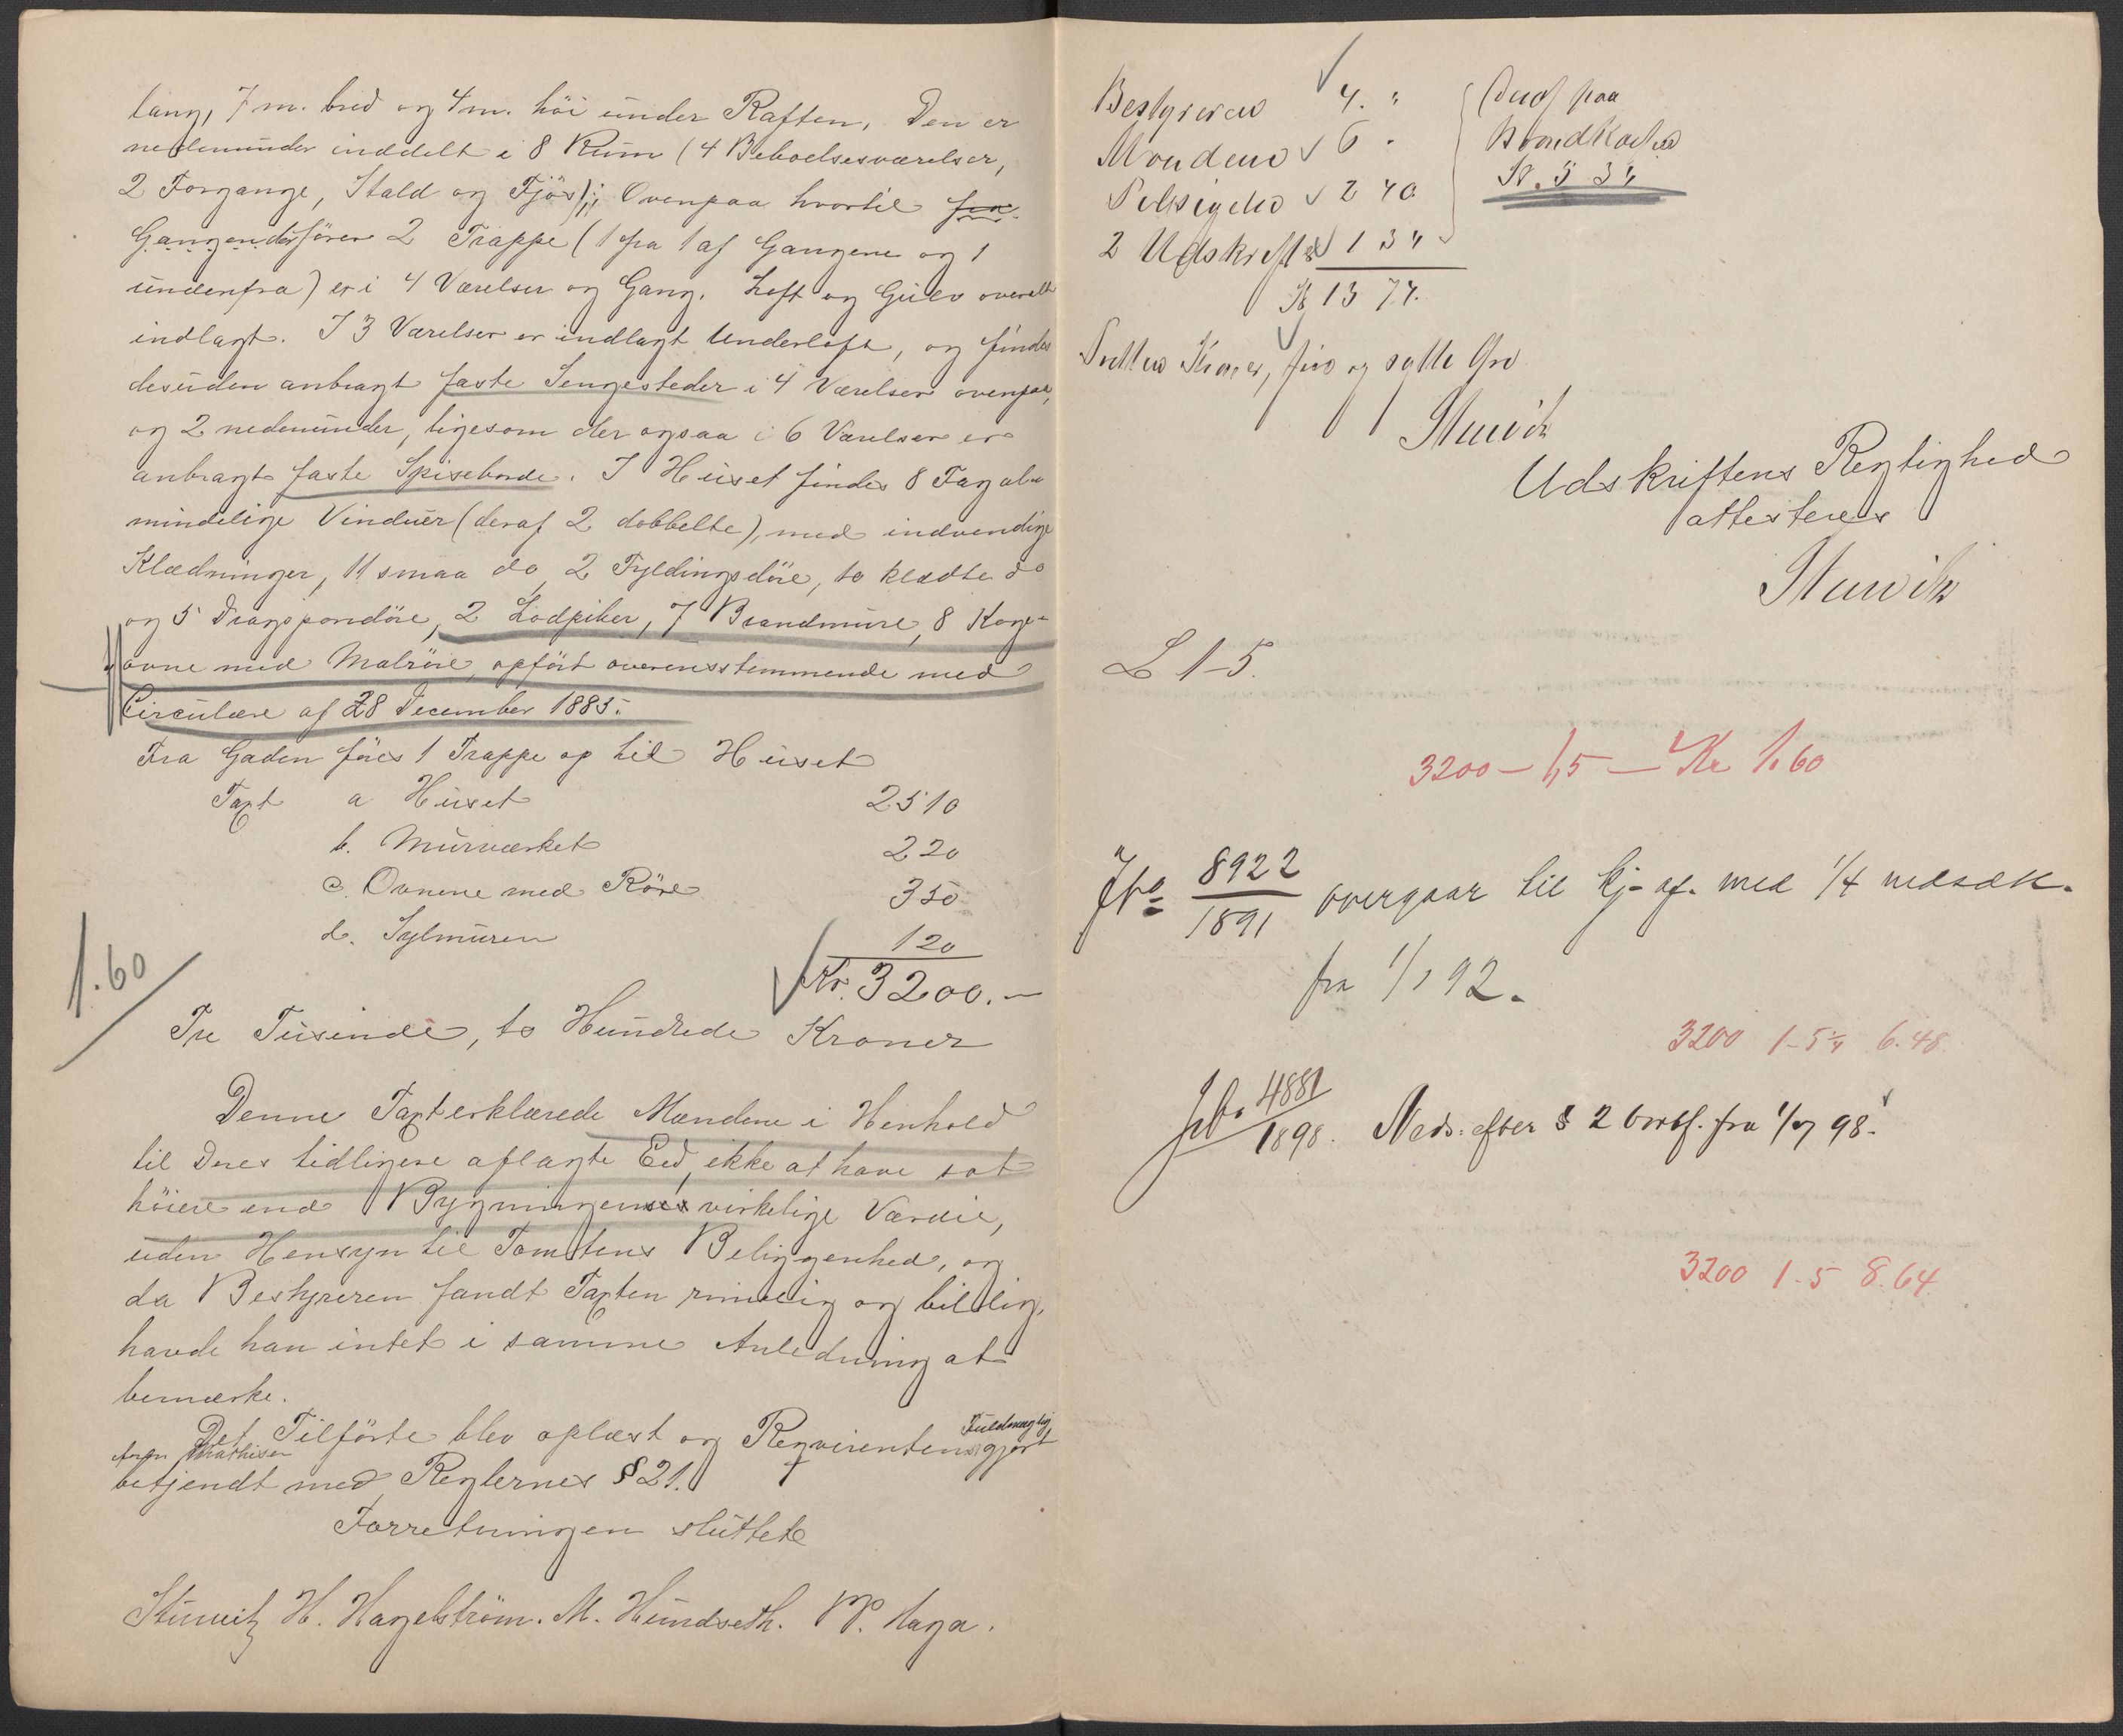 lang, 7 m. bred og 4 m. höi under Raften. Den er
nedenunder inddelt i 8 Rum (4 Beboelsesværelser,
2 Forgange, Stald og Fjös); Ovenpaa hvortil fra
Gangen der förer 2 Trappe (1 fra 1 af Gangene og 1
undenfra) er i 4 Værelser og Gang. Loft og Gulv overalt
indlagt. I 3 Værelser er indlagt Underloft, og findes
desuden anbragt faste Sengesteder i 4 Værelser ovenpaa,
og 2 nedenunder, ligesom der ogsaa i 6 Værelser er
anbragt faste Spiseborde. I Huset findes 8 Fag al-
mindelige Vinduer (deraf 2 dobbelte), med indvendige
Klædninger, 11 smaa do 2 Fyldingsdöre, 10 klædte do
og 5 Döre, 2 Lodpiber, 7 Brandmure, 8 Koge-
ovne med Malröre, opfört overensstemmende med
Circulære af 28 December 1885.
Fra Gaden föres 1 Trappe op til Huset
Taxt a Huset 2510
b. Murværket 220
c. Ovnene med Röre 350
d. Sylmuren 120
Kr. 3200.-
1.60
Tre Tusinde, to Hundrede Kroner
Denne Taxt erklærede Mændene i Henhold
til Deres tidligere aflagte Eed, ikke at have sat
höiere end Bygningens virkelige Værdie,
uden Hensyn til Tomtens Beliggenhed, og
da Bestyreren fandt Taxten rimelig og billig,
havde han intet i samme Anledning at
bemærke.
Det Tilförte blev oplæst og Reqvirentens Fuldmægtig gjort
Mathisen
betjendt med Reglernes § 21.
Forretningen sluttet
Stuwitz H. Hagelström. M. Hundseth. P. Haga.
Bestyreren 4. "
Mændene 6 -
Pelsigelse 2 40
2 Udskrifter 1 34
Kr 13 74.
paa
Brandkassen
Kr. 5 34
Tretten Kroner, fire og sytti Öre
Stuwitz
Udskriftens Rigtighed
attesteres
Stuwitz
L 1-5.
3200 - 1,5 - Kr 1.60
Jno 8922/1891 overgaar til kj- af. med 1/4 nedsæt.
fra 1/1 92.
3200 1-5 1/4 6.48
Jno 4881/1898. Neds. efter § 2 bortf. fra 1/7 98.
3200 1-5 8.64